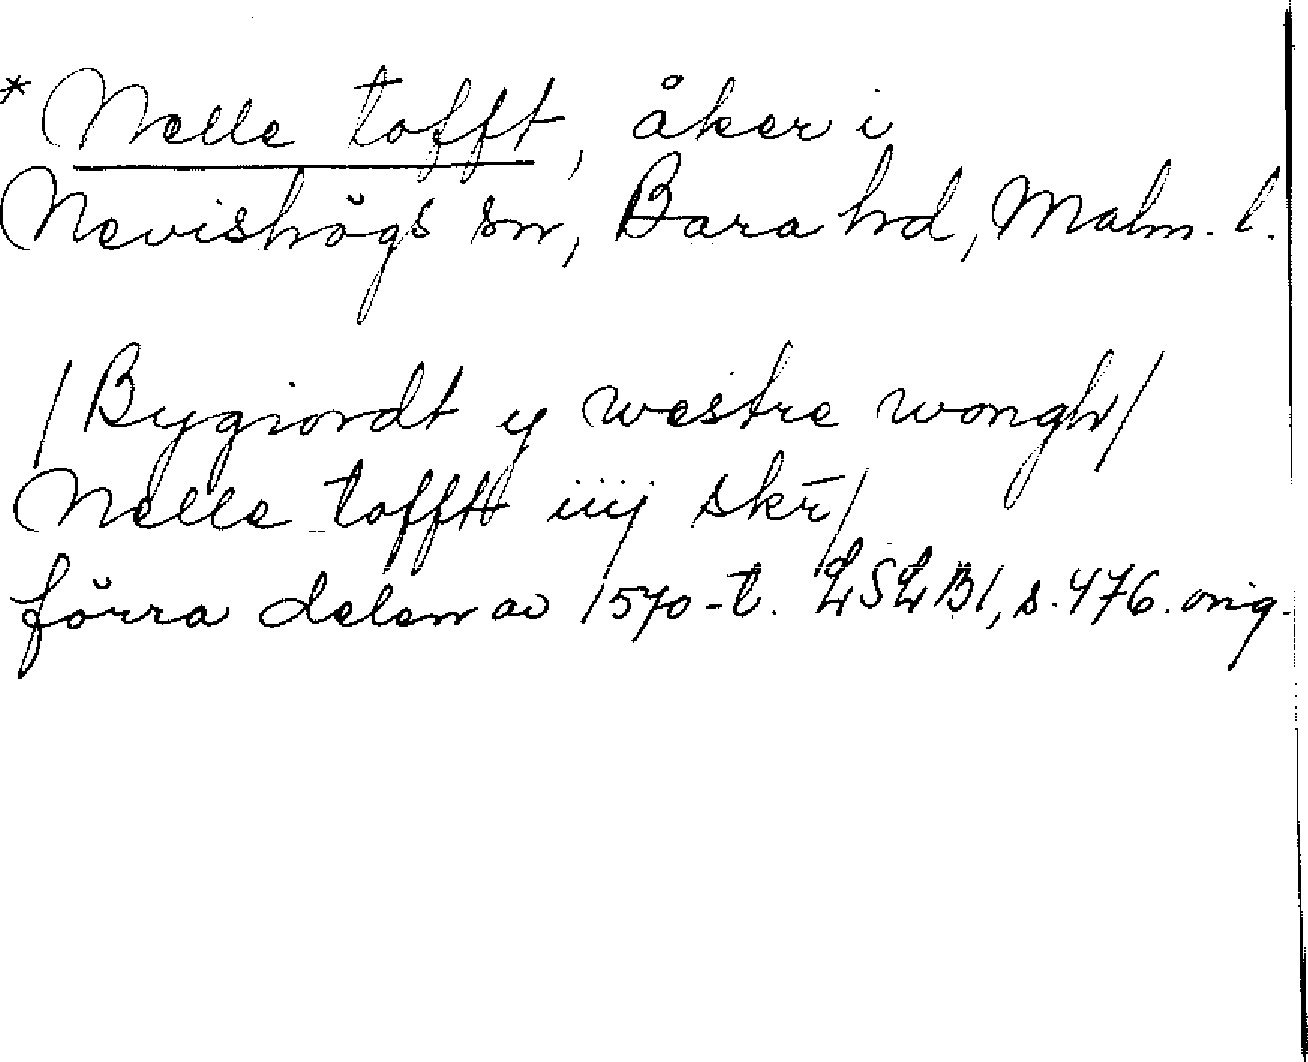 * Nelle tofft, åker i
Nevishögs sn, Bara hd, Malm. l.
/Bygiordt y westre wongh/
Nelle tofft iiij skr̄/
förra delen av 1570-t. LSLB1, s. 476. orig.